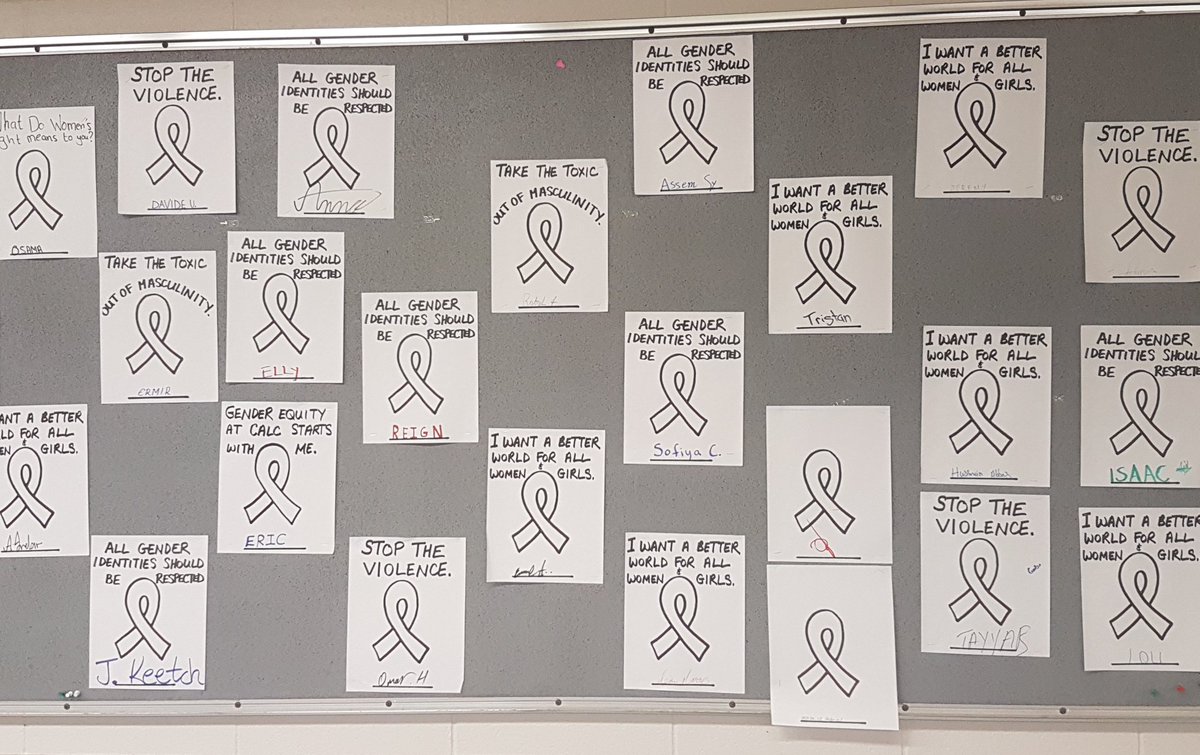 What Do Women's
ght means to you?
OSAMA
STOP THE
VIOLENCE.
DAVIDE U.
ALL GENDER
IDENTITIES SHOULD
BE RESPECTED
Anna
TAKE THE TOXIC
OUT OF MASCULINITY.
ALL GENDER
IDENTITIES SHOULD
BE RESPECTED
Assem Sy
I WANT A BETTER
WORLD FOR ALL
WOMEN & GIRLS.
Tristan
I WANT A BETTER
WORLD FOR ALL
WOMEN & GIRLS.
STOP THE
VIOLENCE.
TAKE THE TOXIC
OUT OF MASCULINITY.
ERMIR
ALL GENDER
IDENTITIES SHOULD
BE RESPECTED
ELLY
ALL GENDER
IDENTITIES SHOULD
BE RESPECTED
REIGN
ALL GENDER
IDENTITIES SHOULD
BE RESPECTED
Sofiya C.
I WANT A BETTER
WORLD FOR ALL
WOMEN & GIRLS.
ALL GENDER
IDENTITIES SHOUL
BE RESPECTE
ISAAC
ANT A BETTER
LD FOR ALL
EN & GIRLS.
GENDER EQUITY
AT CALC STARTS
WITH ME.
ERIC
I WANT A BETTER
WORLD FOR ALL
WOMEN & GIRLS.
STOP THE
VIOLENCE.
TAYYAB
I WANT A BETTER
WORLD FOR ALL
WOMEN & GIRLS.
LOU
ALL GENDER
IDENTITIES SHOULD
BE RESPECTED
J. Keetch
STOP THE
VIOLENCE.
Omar H
I WANT A BETTER
WORLD FOR ALL
WOMEN & GIRLS.